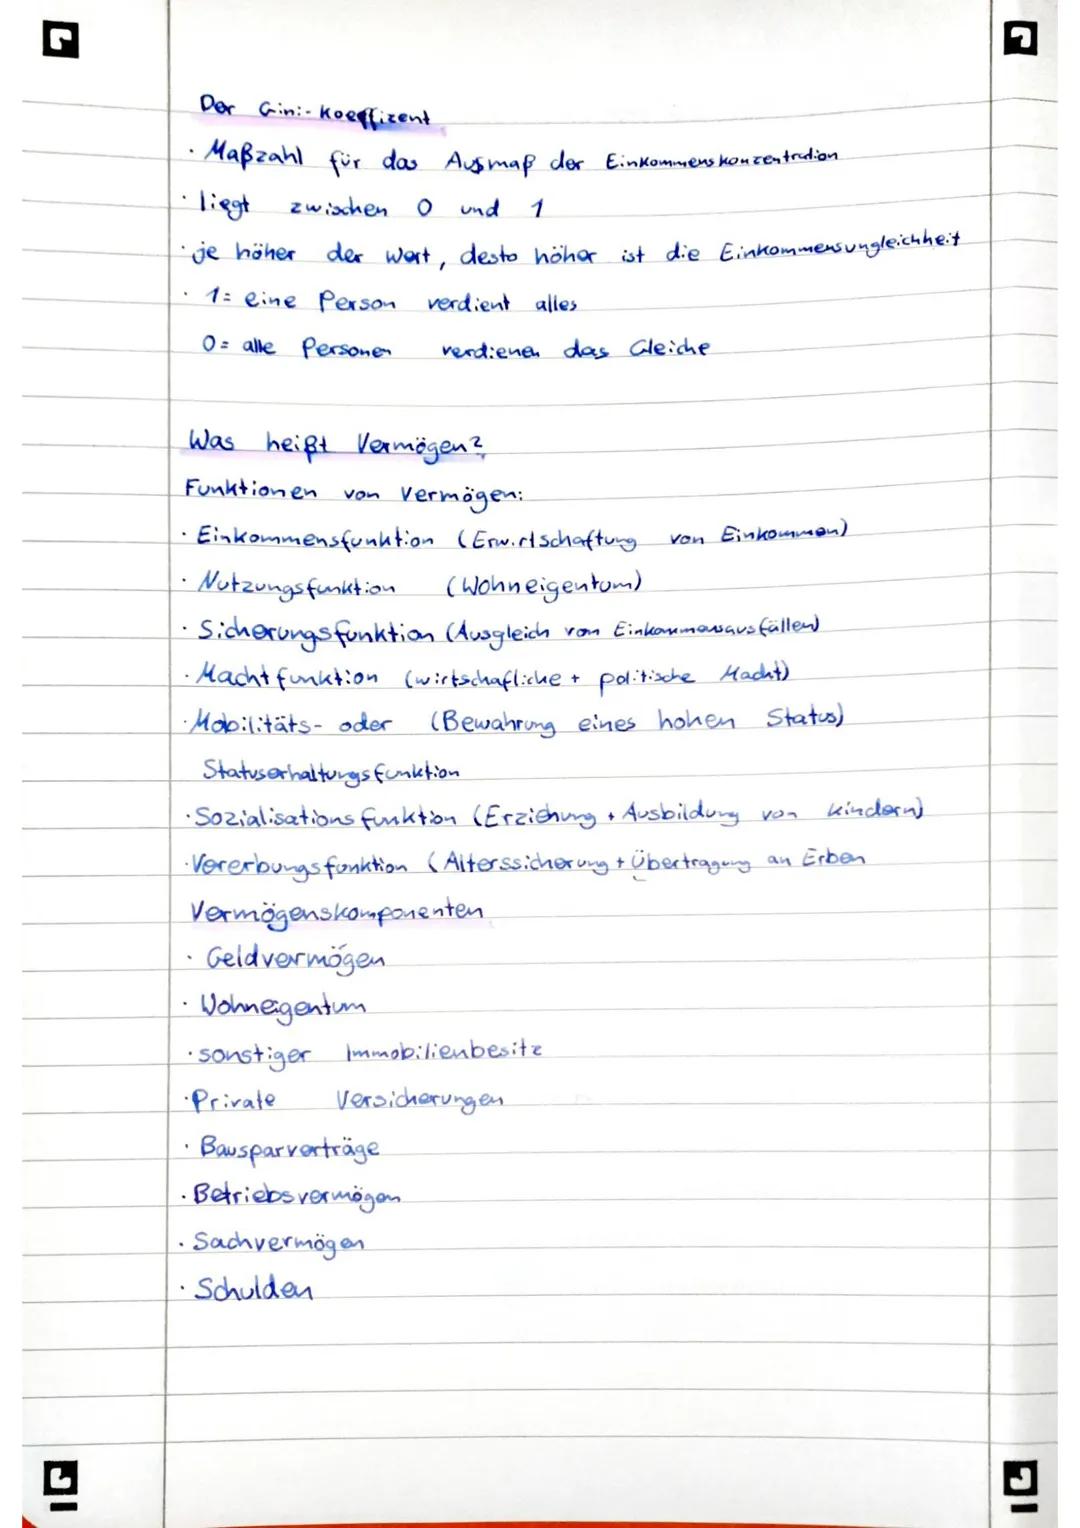 Der Gini-Koeffizent
· Maßzahl für das Ausmaß der Einkommenskonzentration
· liegt zwischen 0 und 1
· je höher der Wert, desto höher ist die Einkommensungleichheit
· 1= eine Person verdient alles
0= alle Personen verdienen das Gleiche
Was heißt Vermögen?
Funktionen von Vermögen:
· Einkommensfunktion (Erwirtschaftung von Einkommen)
· Nutzungsfunktion (Wohneigentum)
· Sicherungsfunktion (Ausgleich von Einkommensausfällen)
· Machtfunktion (wirtschafliche + politische Macht)
· Mobilitäts- oder (Bewahrung eines hohen Status)
Statuserhaltungsfunktion
· Sozialisationsfunktion (Erziehung + Ausbildung von Kindern)
· Vererbungsfunktion (Alterssicherung + Übertragung an Erben
Vermögenskomponenten
· Geldvermögen
· Wohneigentum
· sonstiger Immobilienbesitz
· Private Versicherungen
· Bausparverträge
· Betriebsvermögen
· Sachvermögen
· Schulden